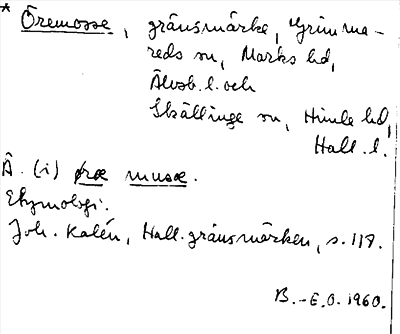 * Öremosse, gränsmärke, Grimma-
reds sn, Marks hd,
Älvsb. l. och
Skällinge sn, Himle hd,
Hall. l.
Å. (i) øræ musæ.
Etymologi.
Joh. Kalén, Hall. gränsmärken, s. 118.
B.-E.O. 1960.